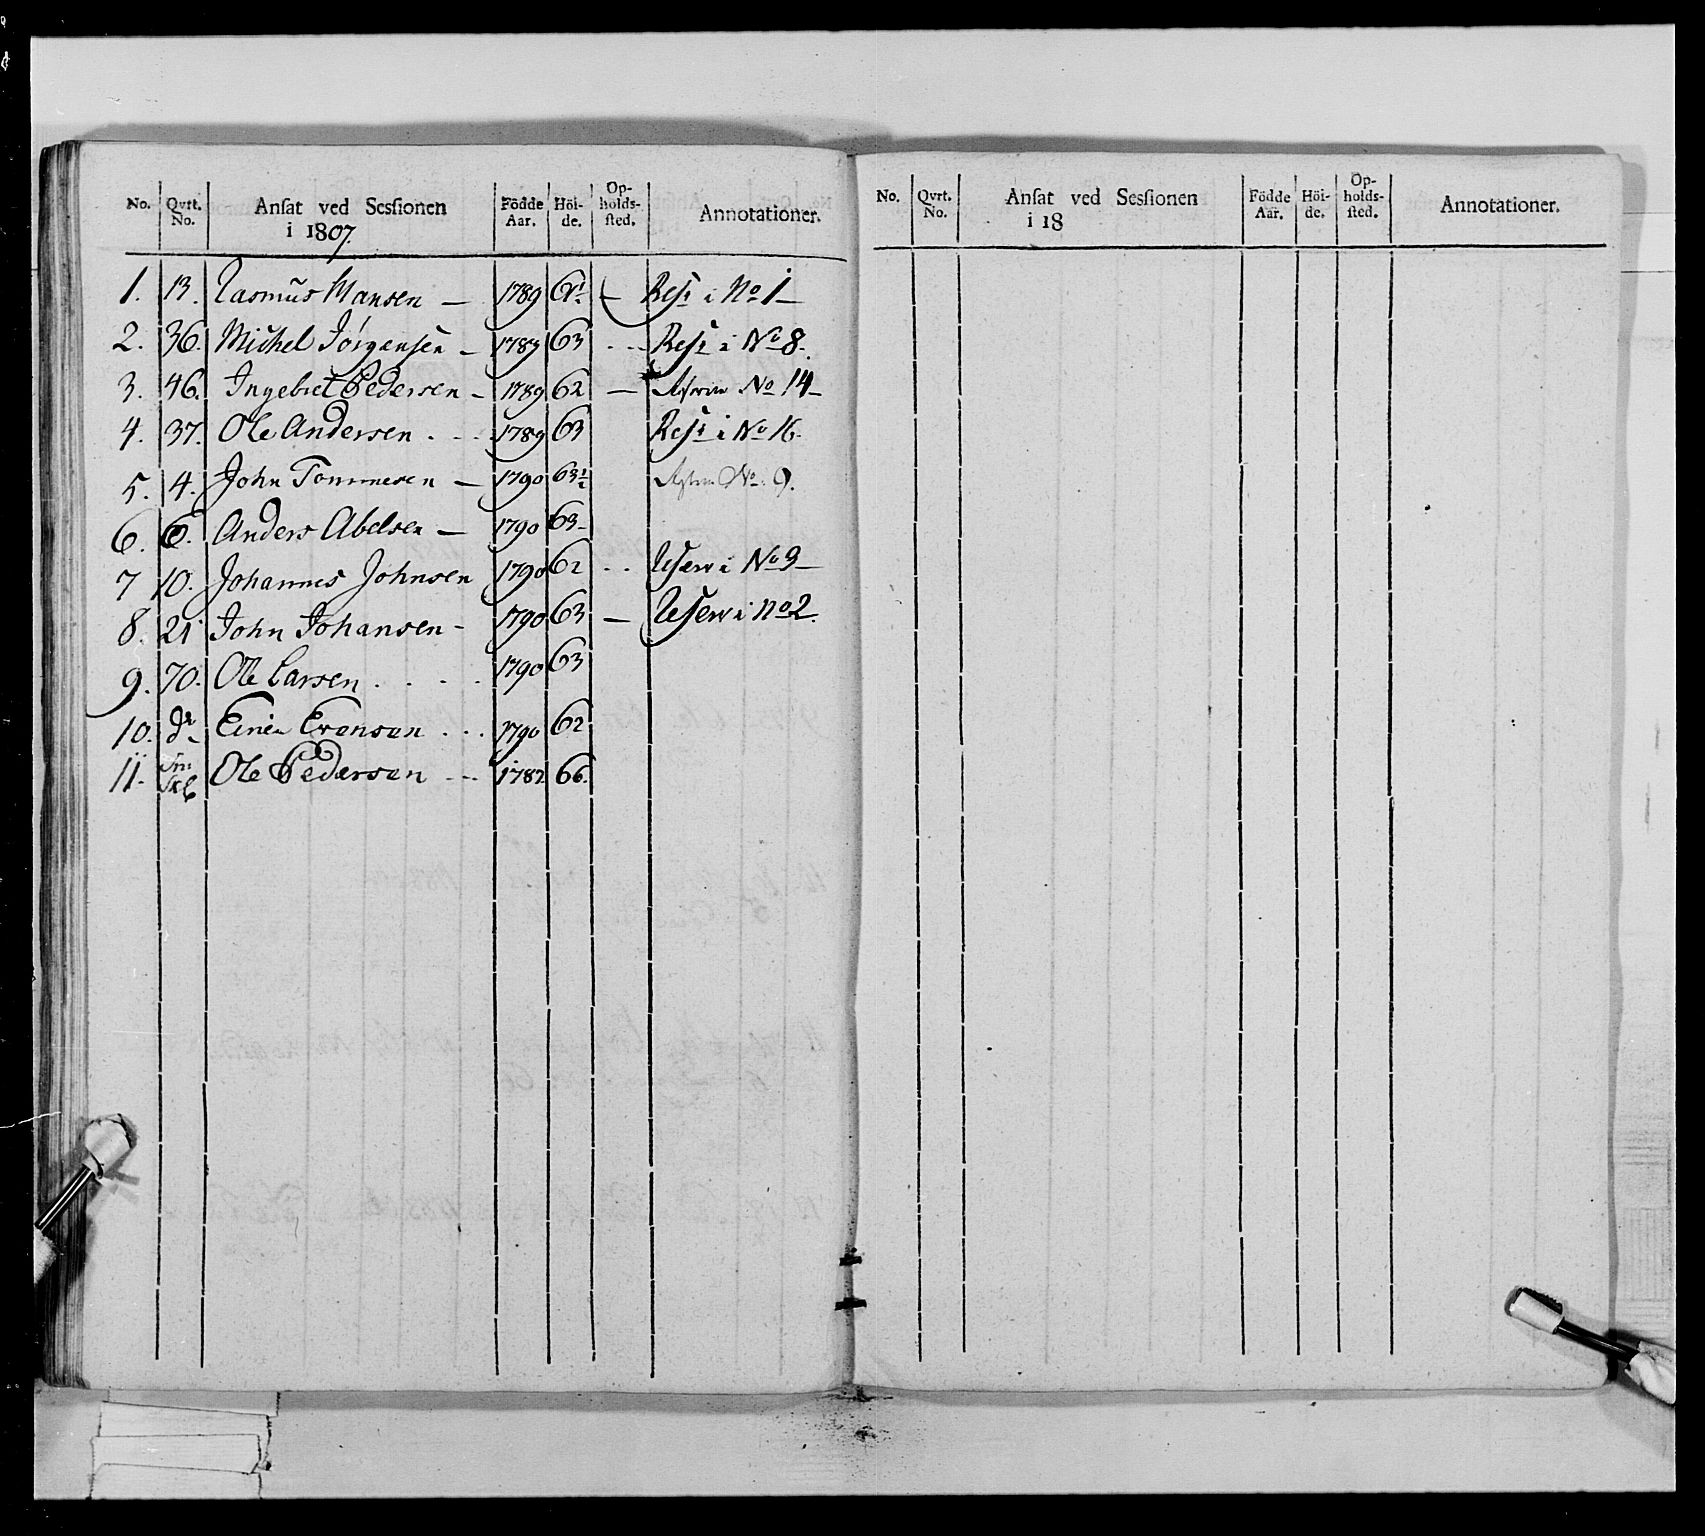 No. Qvrt. No. Ansat ved Sessionen i 1807. Födde Aar. Höi-de. Op-holds-sted. Annotationer.
1. 13. Rasmus Hansen — 1789 — Rest i No 1 —
2. 36. Michel Jörgensen — 1789 63 . . . Rest i No 8.
3. 46. Ingebret Pedersen — 1789 62 — No 14 —
4. 37. Ole Andersen . . . 1789 63 Rest i No 16.
5. 4. John Tommesen — 1790 63½ No. 9.
6. 6. Anders Abelsen — 1790 63 —
7 10. Johannes Johnsen 1790 62 . . Reserv i No 9 —
8. 21 John Johansen — 1790 63 — Reserv i No 2.
9. 70. Ole Larsen . . . . 1790 63
10. do Evensen . . . 1790 62
11. Ole Pedersen - - - 1782 66.
No. Qvrt. No. Ansat ved Sessionen i 18 Födde Aar. Höi-de. Op-holds-sted. Annotationer.